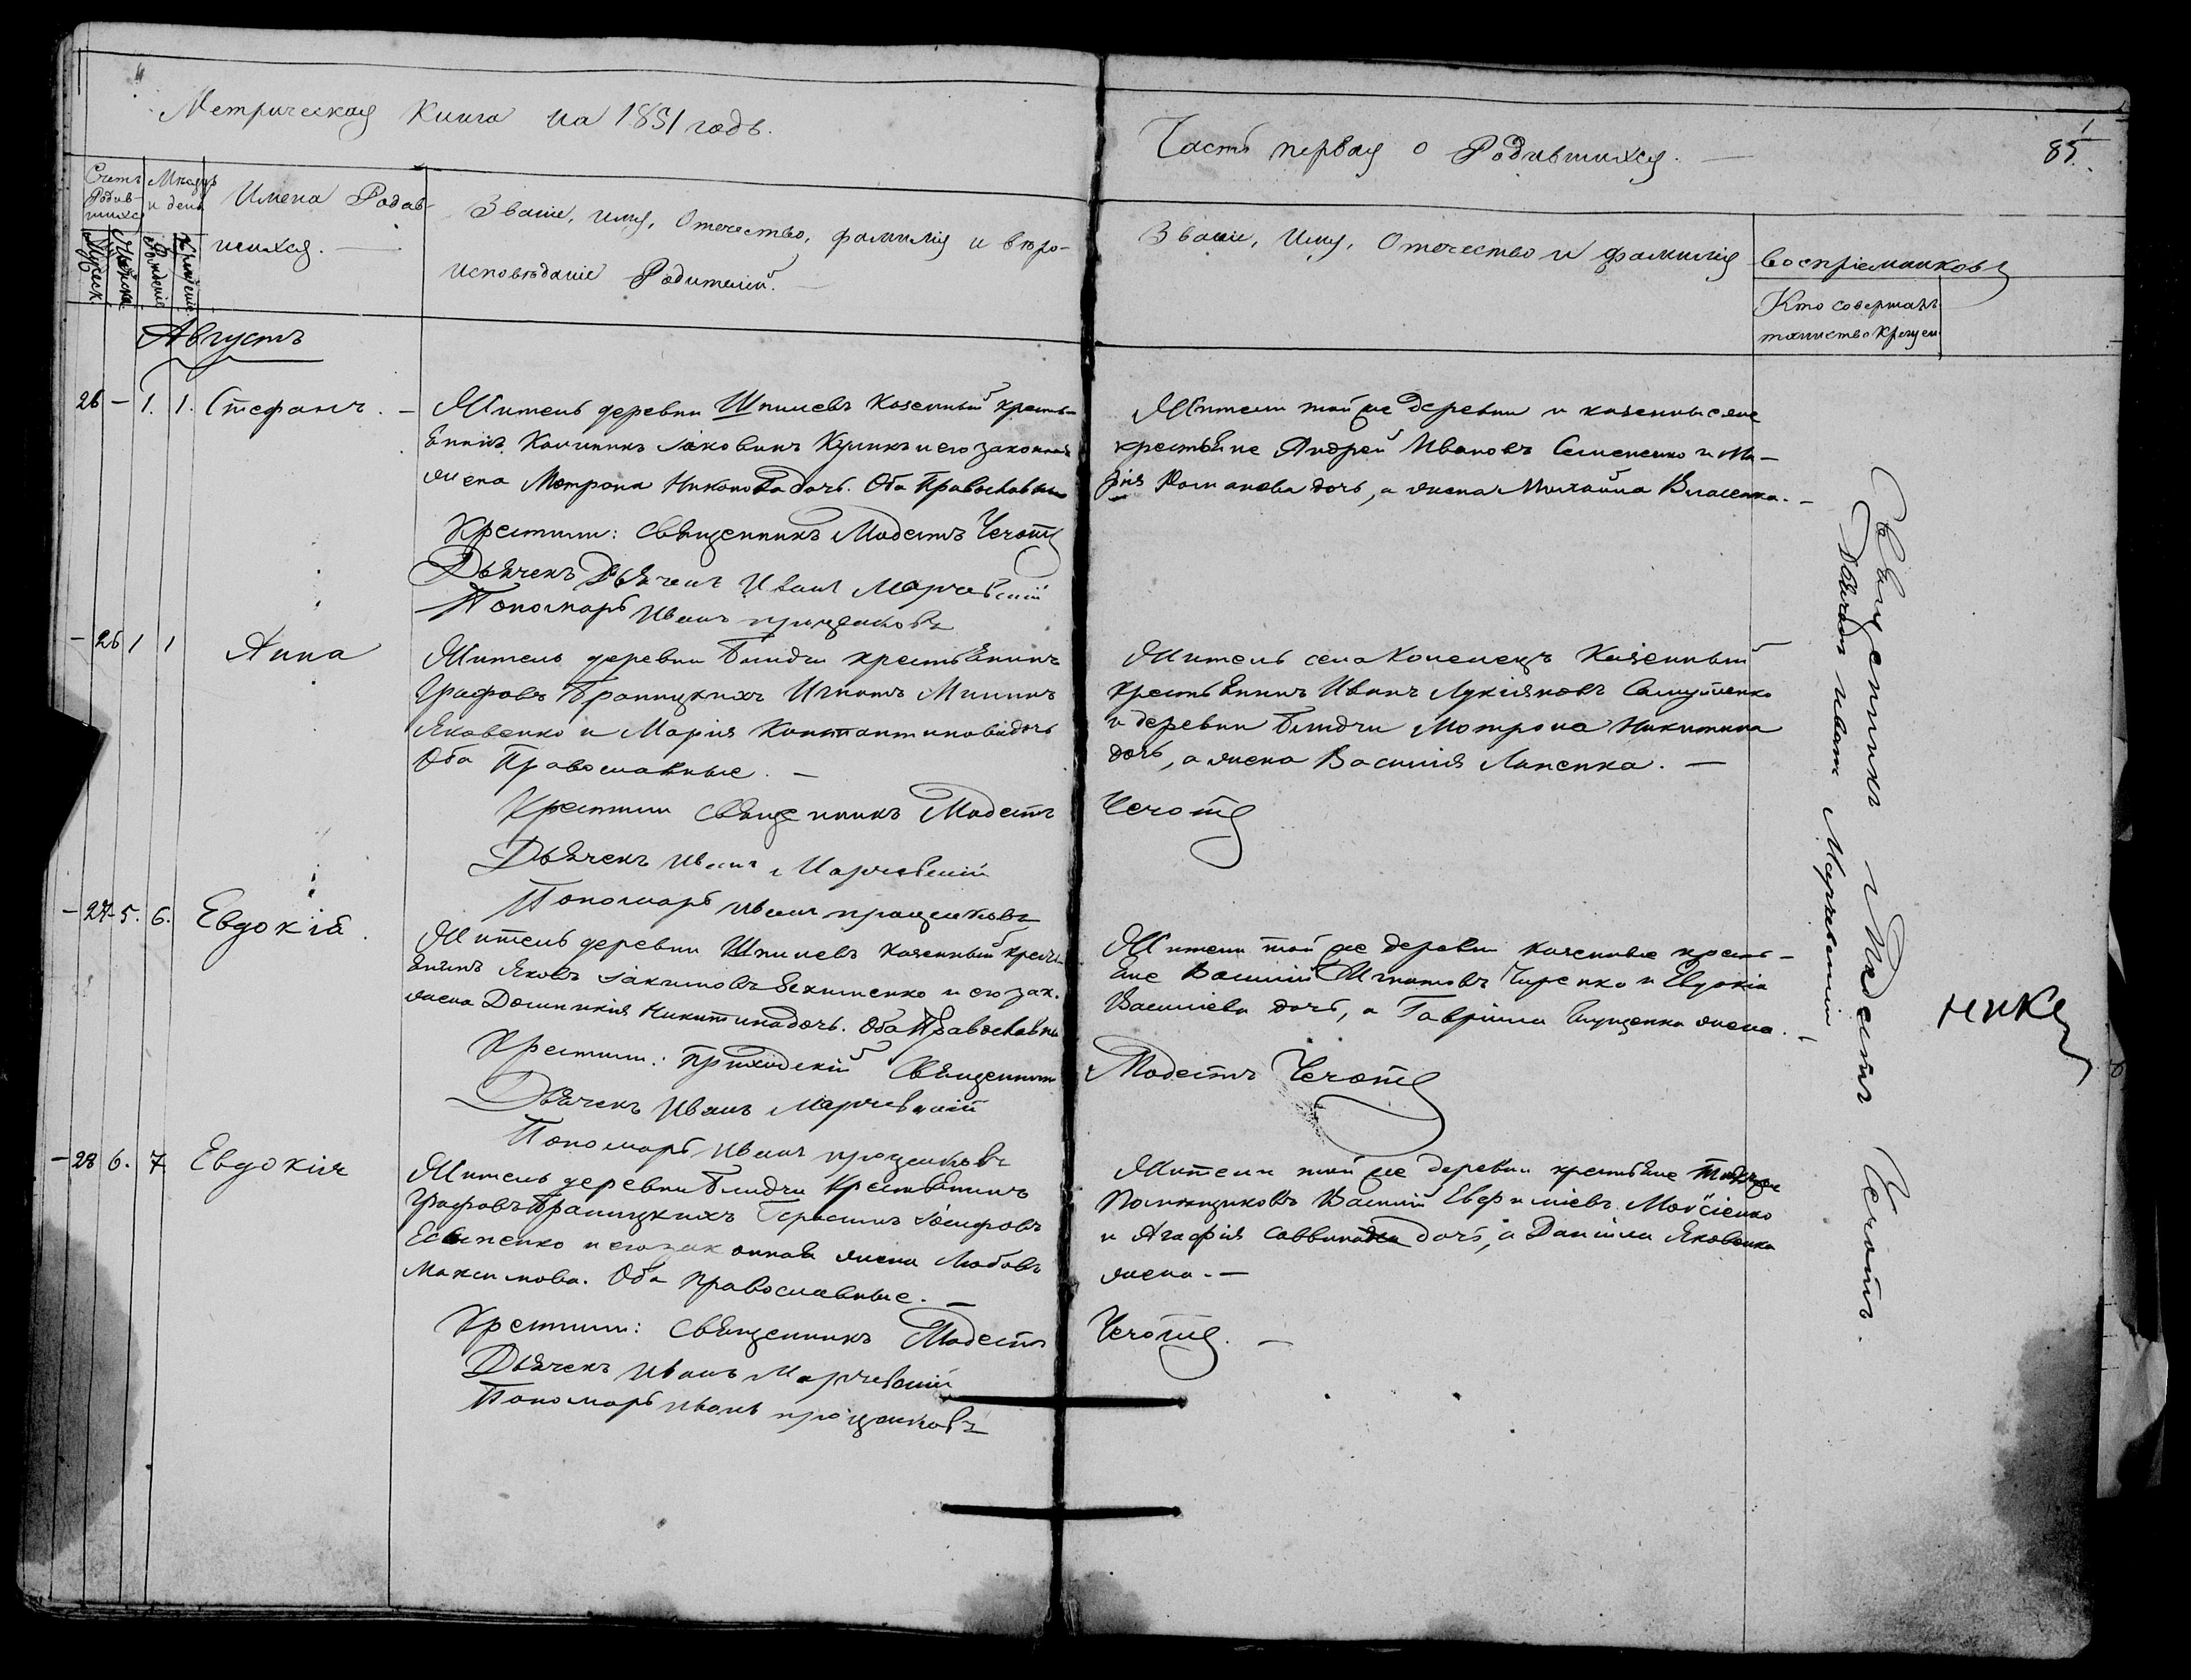 Метрическая Книга на 1851 годъ.
Часть первая о Родившихся.
85.
Счетъ Родив-шихся
Мѣсяцъ и день
Мужеск.
Женска.
Рожденiе
Крещенiе
Имена Родив-
шихся.
Званiе, имя, Отечество, фамилiя и вѣро-
исповѣданiе Родителей.
Званiе, Имя, Отечество и фамилiя воспрiемниковъ
Кто совершалъ
таинство Крещен
Августъ
26 - 1. 1. Стефанъ. -
Житель деревни Шпилевъ Казенный кресть-
янинъ Калиникъ Iаковинъ Куликъ и его законная
жена Мотрона Никонова дочь. Оба Православные
Крестили: священникъ Модестъ Чечотъ
Дьячекъ Дьячекъ Иванъ Марчевскiй
Пономарь Иванъ прощаковъ
Жители той же деревни и казенные
крестьяне Андрей Ивановъ Семененко и Ма-
рiя Романова дочь, а жена Михайла Власенка. -
- 26 1 1 Анна
Житель деревни Блидчи крестьянинъ
Графовъ Браницкихъ Игнатъ Мининъ
Яковенко и Марiя Константинова дочь
Оба Православные. -
Крестили священникъ Модестъ
Дьячекъ Иванъ Марчевскiй
Пономарь иванъ прощаковъ
Житель села Коленецъ Казенный
крестьянинъ Иванъ Лукiяновъ
и деревни Блидчи Мотрона Никитина
дочь, а жена Василiя Лапенка. -
Чечотъ
- 27 - 5. 6. Евдокiя.
Житель деревни Шпилевъ казенный кресть-
янинъ Яковъ Iакимовъ Екименко и его зак.
жена Домникiя Никитина дочь. Оба Православны
Крестили: Приходскiй Священникъ
Дьячекъ Иванъ Марчевскiй
Пономарь иванъ прощаковъ
Жители той же деревни казенные кресть-
яне Василiй Игнатовъ и Евдокiя
Василiева дочь, а Гаврiила жена. -
Модестъ Чечотъ
- 28 6. 7 Евдокiя
Житель деревни Блидчи Крестьянинъ
Графовъ Браницкихъ Герасимъ Iосифовъ
Есипенко и его законная жена Любовь
Максимова. Оба Православные. -
Крестили: священникъ Модестъ
Дьячекъ Иванъ Марчевскiй
Пономарь иванъ прощаковъ
Жители той же деревни крестьяне
Помѣщиковъ Василiй Евфимiевъ Моисiенко
и Агафiя Саввина дочь, а Данiила Яковенка
жена. -
Чечотъ. -
Священникъ Модестъ Чечотъ.
Дьячекъ иванъ Марчевскiй